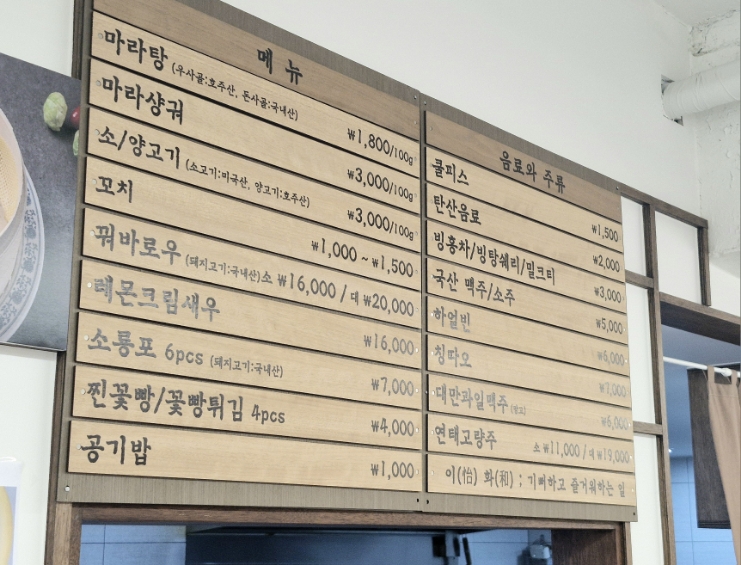 메뉴
마라탕 (우사골:호주산, 돈사골:국내산) ₩1,800/100g
마라샹궈 ₩3,000/100g
소/양고기 (소고기:미국산, 양고기:호주산) ₩3,000/100g
꼬치 ₩1,000 ~ ₩1,500
꿔바로우 (돼지고기:국내산) 소 ₩16,000 / 대 ₩20,000
레몬크림새우 ₩16,000
소룡포 6pcs (돼지고기:국내산) ₩7,000
찐꽃빵/꽃빵튀김 4pcs ₩4,000
공기밥 ₩1,000
음료와 주류
쿨피스 ₩1,500
탄산음료 ₩2,000
빙홍차/빙탕쉐리/밀크티 ₩3,000
국산 맥주/소주 ₩5,000
하얼빈 ₩6,000
칭따오 ₩7,000
대만과일맥주 ₩6,000
연태고량주 소 ₩11,000 / 대 ₩19,000
이(怡) 화(和) ; 기뻐하고 즐거워하는 일